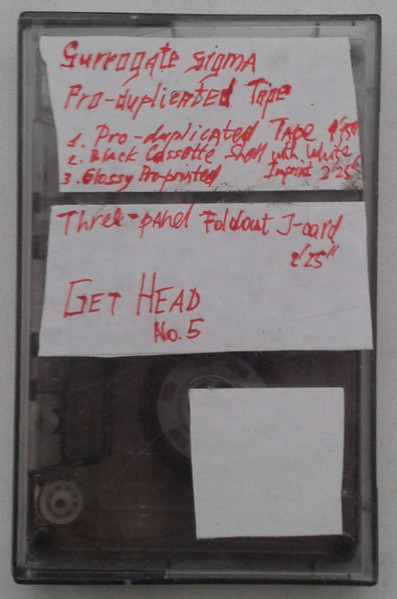 Surrogate Sigma
Pro-duplicated Tape
1. Pro-duplicated Tape 1'50"
2. Black Cassette Shell with White
Imprint 2'25"
3. Glossy Pro-printed
Three-panel Foldout J-card
2'25"
GET HEAD
No. 5